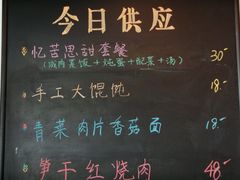 今日供应
忆苦思甜套餐 30-
(咸肉菜饭+炖蛋+配菜+汤)
手工大馄饨 18-
青菜肉片香菇面 18-
笋干红烧肉 48-